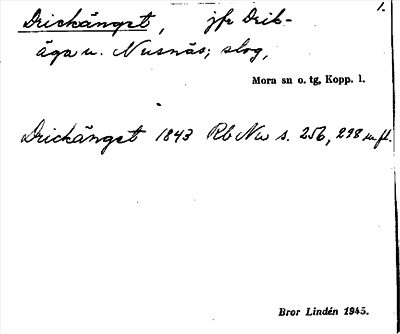 1.
Drickängst, jfr Drik-
äga u. Nusnäs; slog,
Mora sn o. tg, Kopp. l.
Drickängst 1843 Rb Nu s. 256, 298 m fl.
Bror Lindén 1945.